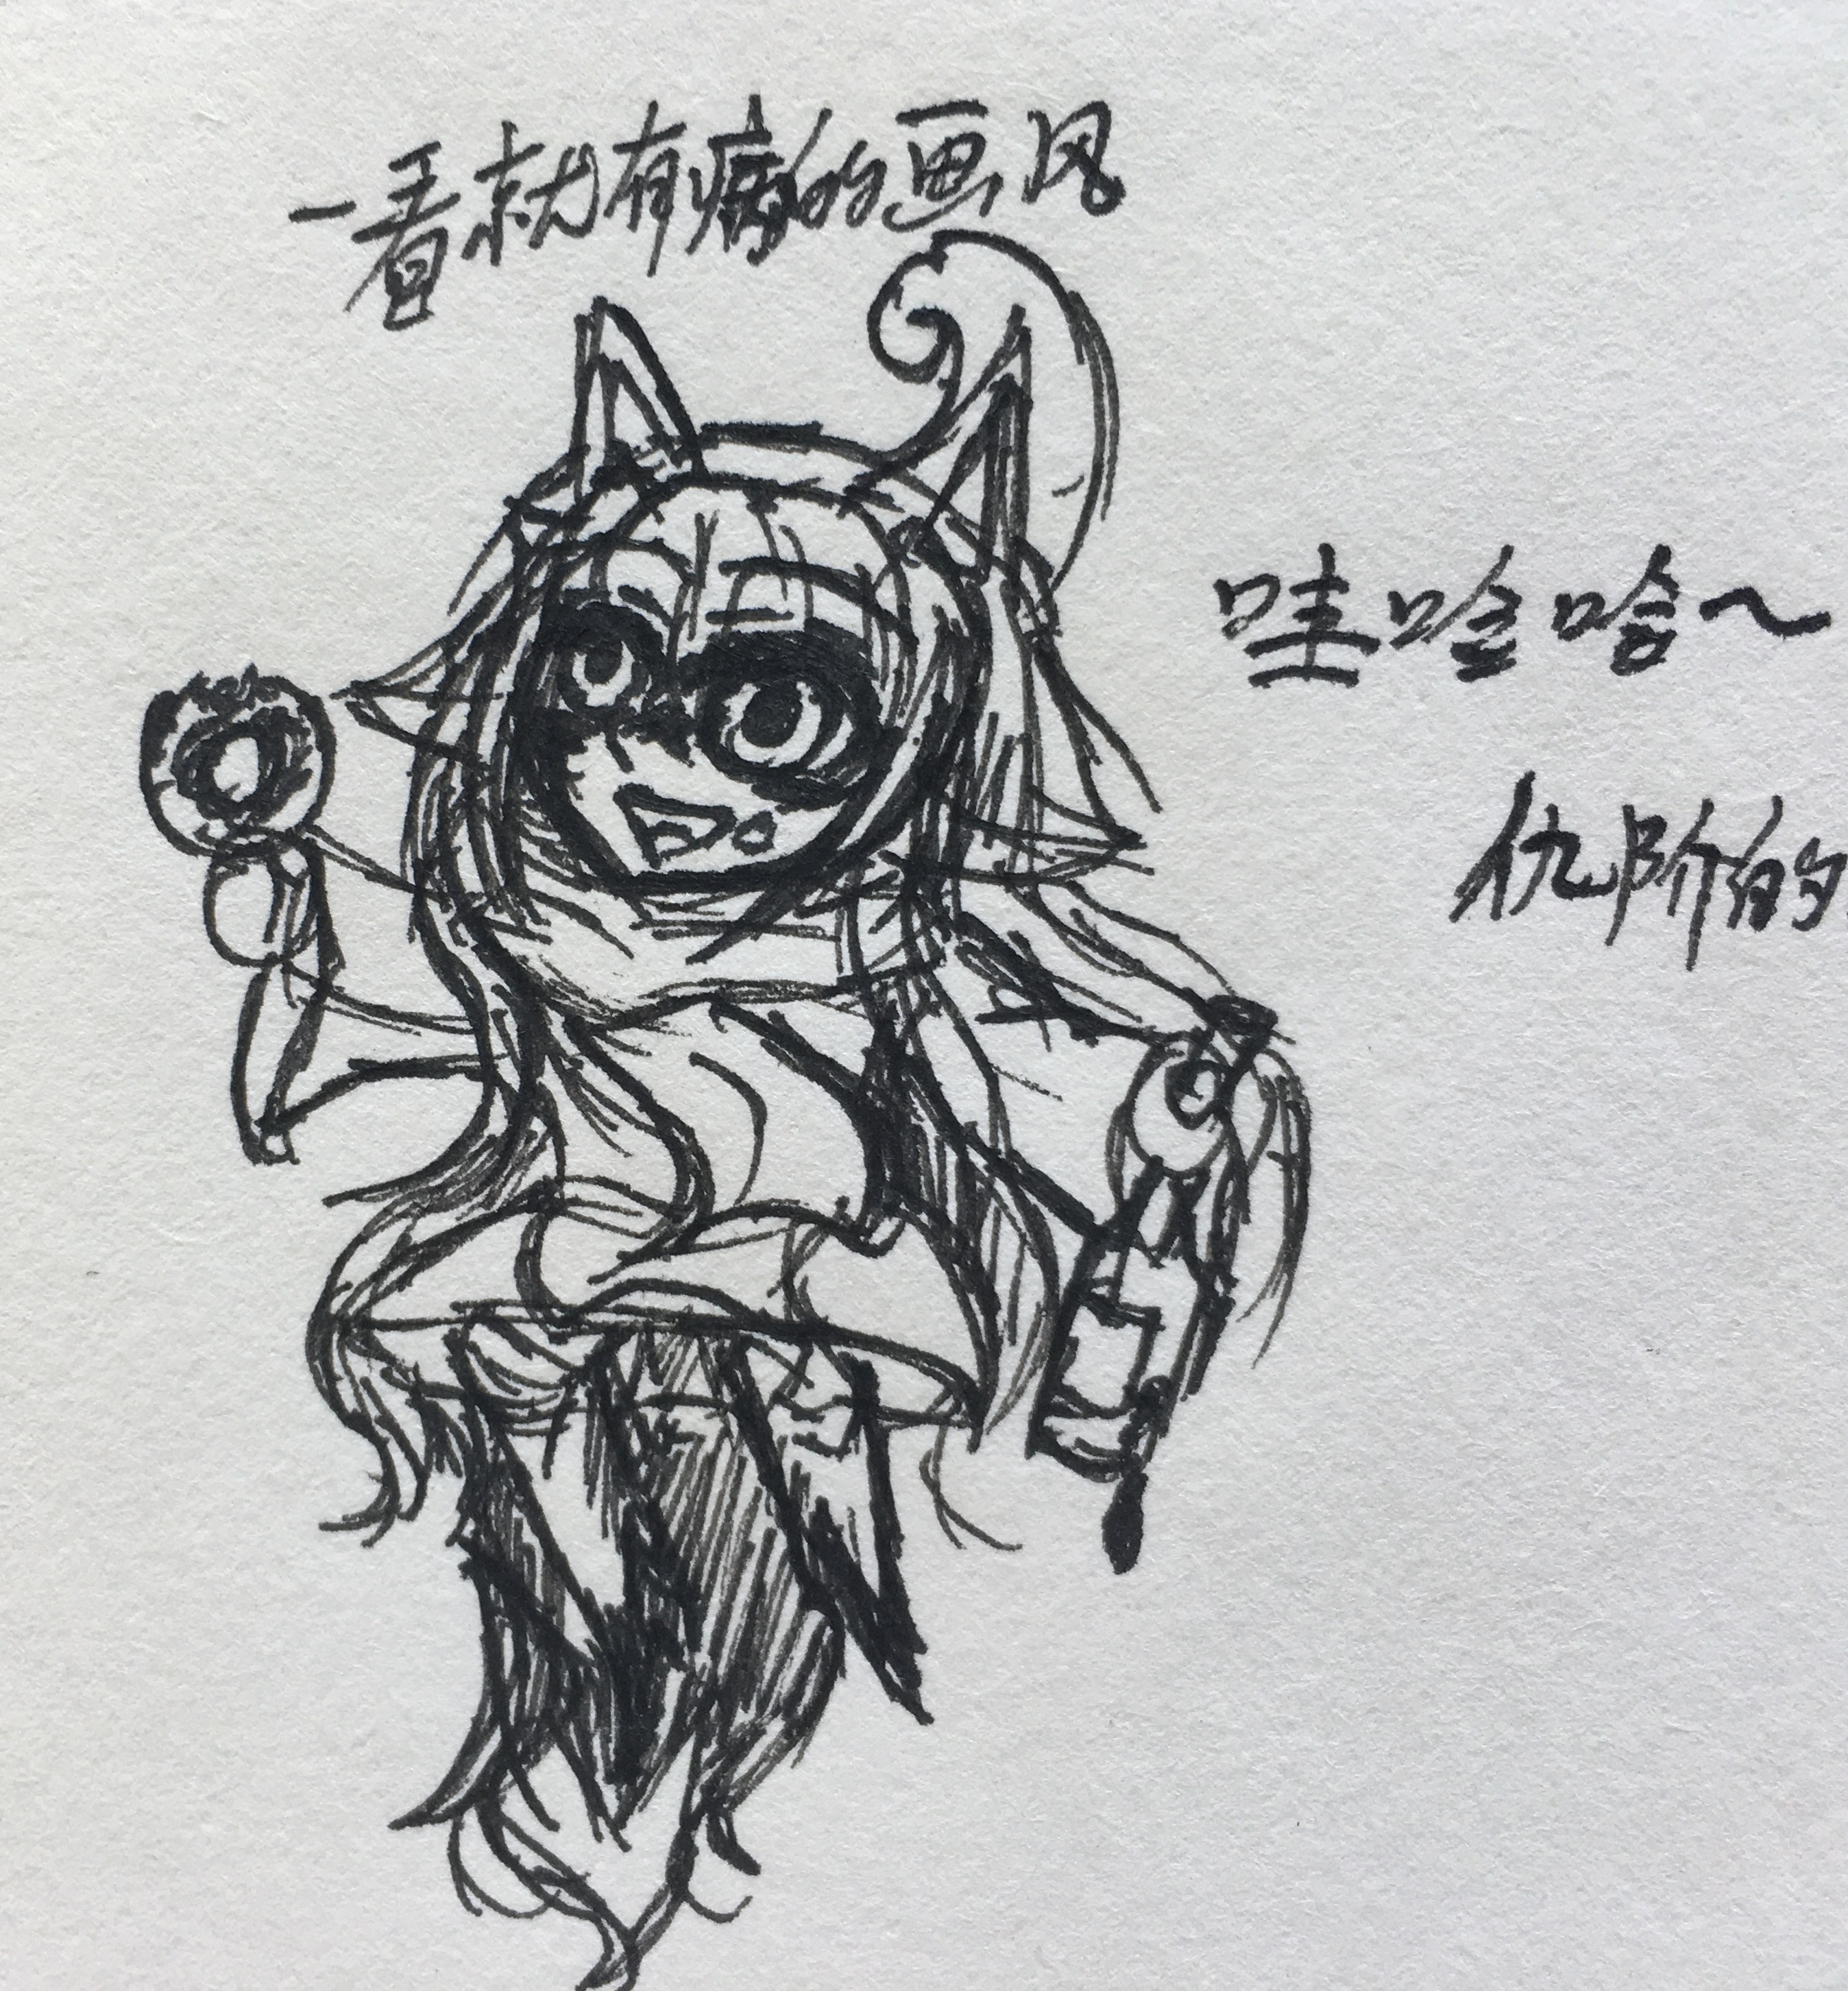 一看就有病的画风
哇哈哈～
仇阶的